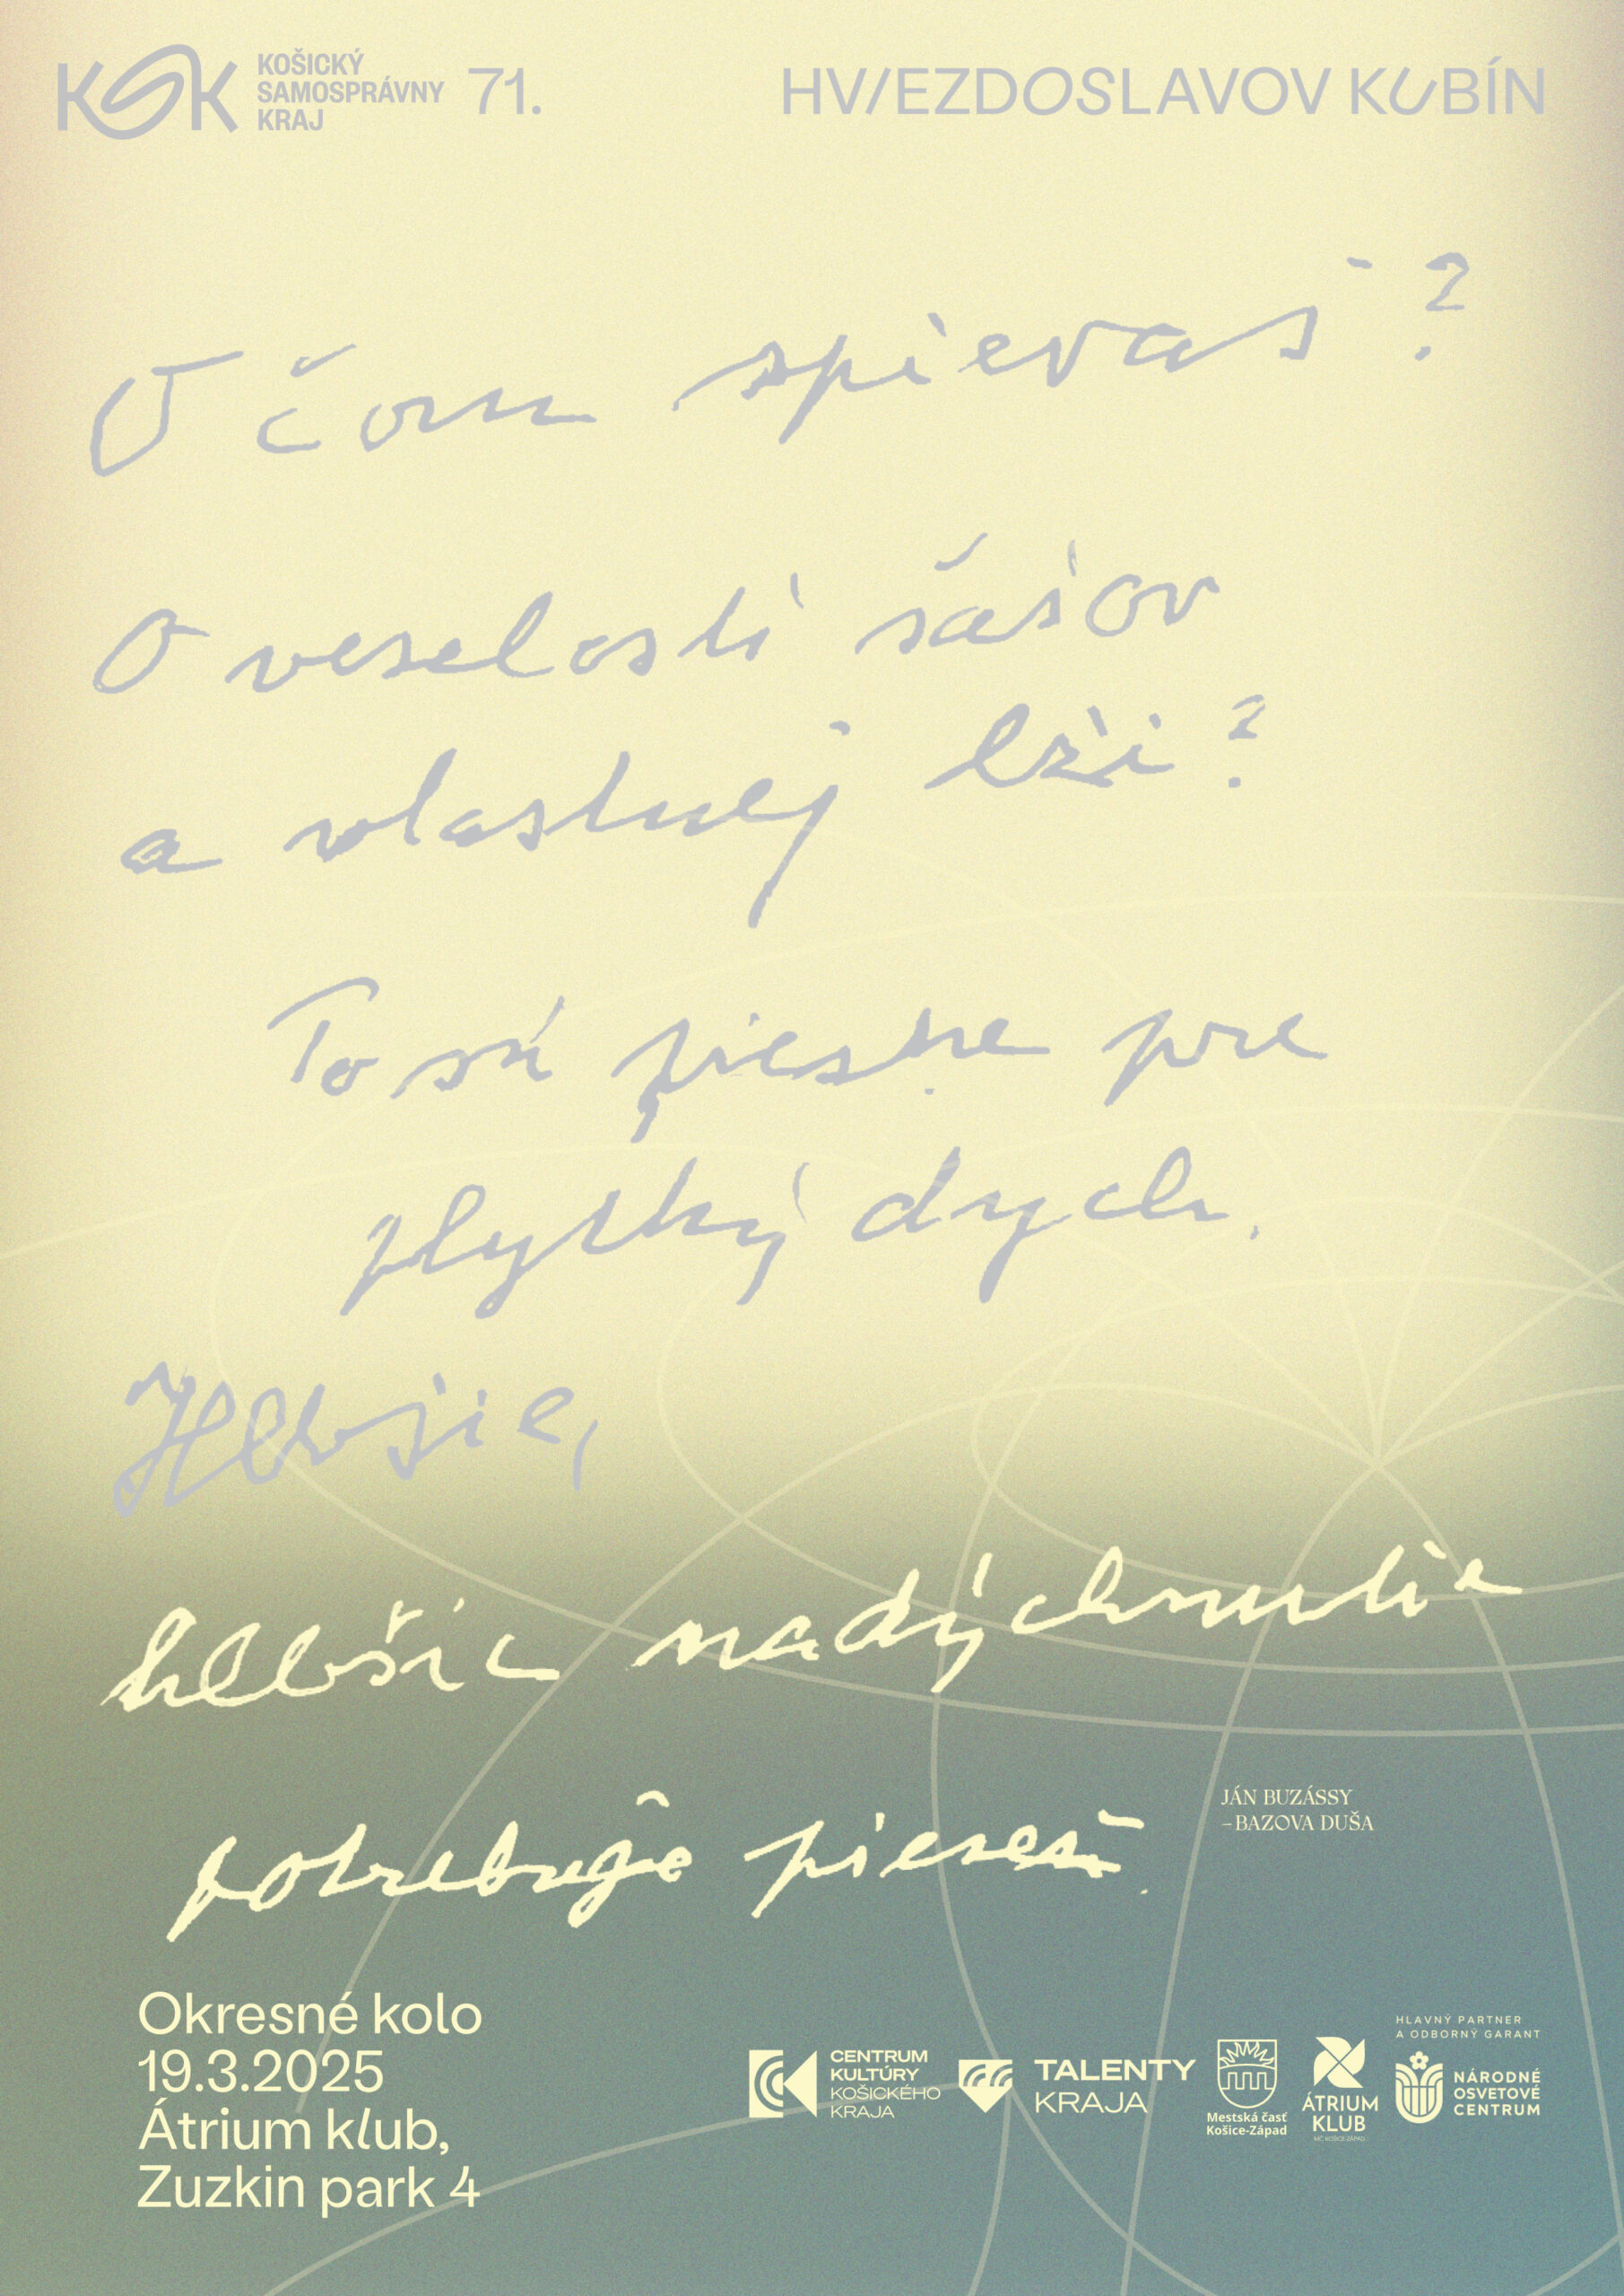 KSK
KOŠICKÝ
SAMOSPRÁVNY
KRAJ
71.
HVIEZDOSLAVOV KUBÍN
O čom spievaš?
O veselosti šašov
a vlastnej lži?
To sú piesne pre
plytký dych.
Hlbšie,
hlbšie nadýchnutie
potrebuje pieseň.
JÁN BUZÁSSY
–BAZOVA DUŠA
Okresné kolo
19.3.2025
Átrium klub,
Zuzkin park 4
CENTRUM
KULTÚRY
KOŠICKÉHO
KRAJA
TALENTY
KRAJA
Mestská časť
Košice-Západ
ÁTRIUM
KLUB
MČ KOŠICE-ZÁPAD
HLAVNÝ PARTNER
A ODBORNÝ GARANT
NÁRODNÉ
OSVETOVÉ
CENTRUM